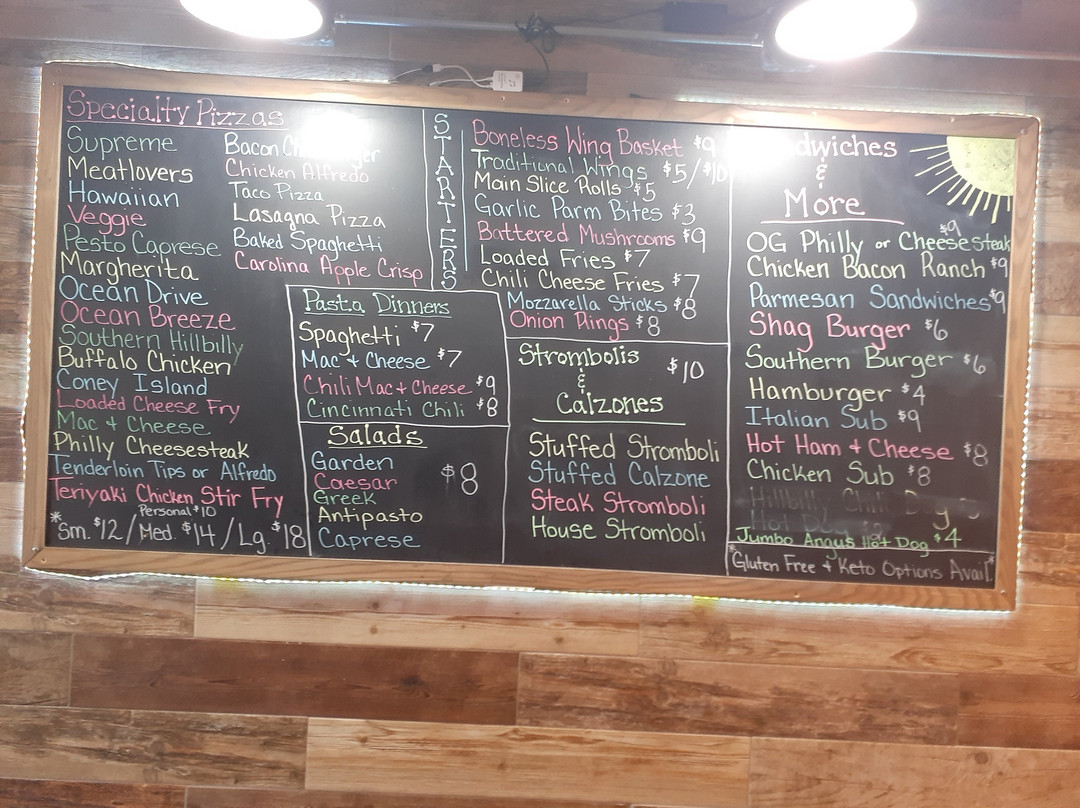 Specialty Pizzas
Supreme
Meatlovers
Hawaiian
Veggie
Pesto Caprese
Margherita
Ocean Drive
Ocean Breeze
Southern Hillbilly
Buffalo Chicken
Coney Island
Loaded Cheese Fry
Mac & Cheese
Philly Cheesesteak
Tenderloin Tips or Alfredo
Teriyaki Chicken Stir Fry
Personal $10
*Sm. $12/Med. $14/Lg. $18
Bacon
Chicken Alfredo
Taco Pizza
Lasagna Pizza
Baked Spaghetti
Carolina Apple Crisp
Pasta Dinners
Spaghetti $7
Mac & Cheese $7
Chili Mac & Cheese $9
Cincinnati Chili $8
Salads
$8
Garden
Caesar
Greek
Antipasto
Caprese
STARTERS
Boneless Wing Basket $9
Traditional Wings $5/$10
Main Slice Rolls $5
Garlic Parm Bites $3
Battered Mushrooms $9
Loaded Fries $7
Chili Cheese Fries $7
Mozzarella Sticks $8
Onion Rings $8
Strombolis
&
Calzones
$10
Stuffed Stromboli
Stuffed Calzone
Steak Stromboli
House Stromboli
&
More
OG Philly or Cheesesteak $9
Chicken Bacon Ranch $9
Parmesan Sandwiches $9
Shag Burger $6
Southern Burger $6
Hamburger $4
Italian Sub $9
Hot Ham & Cheese $8
Chicken Sub $8
Jumbo Angus Hot Dog $4
*Gluten Free & Keto Options Avail*